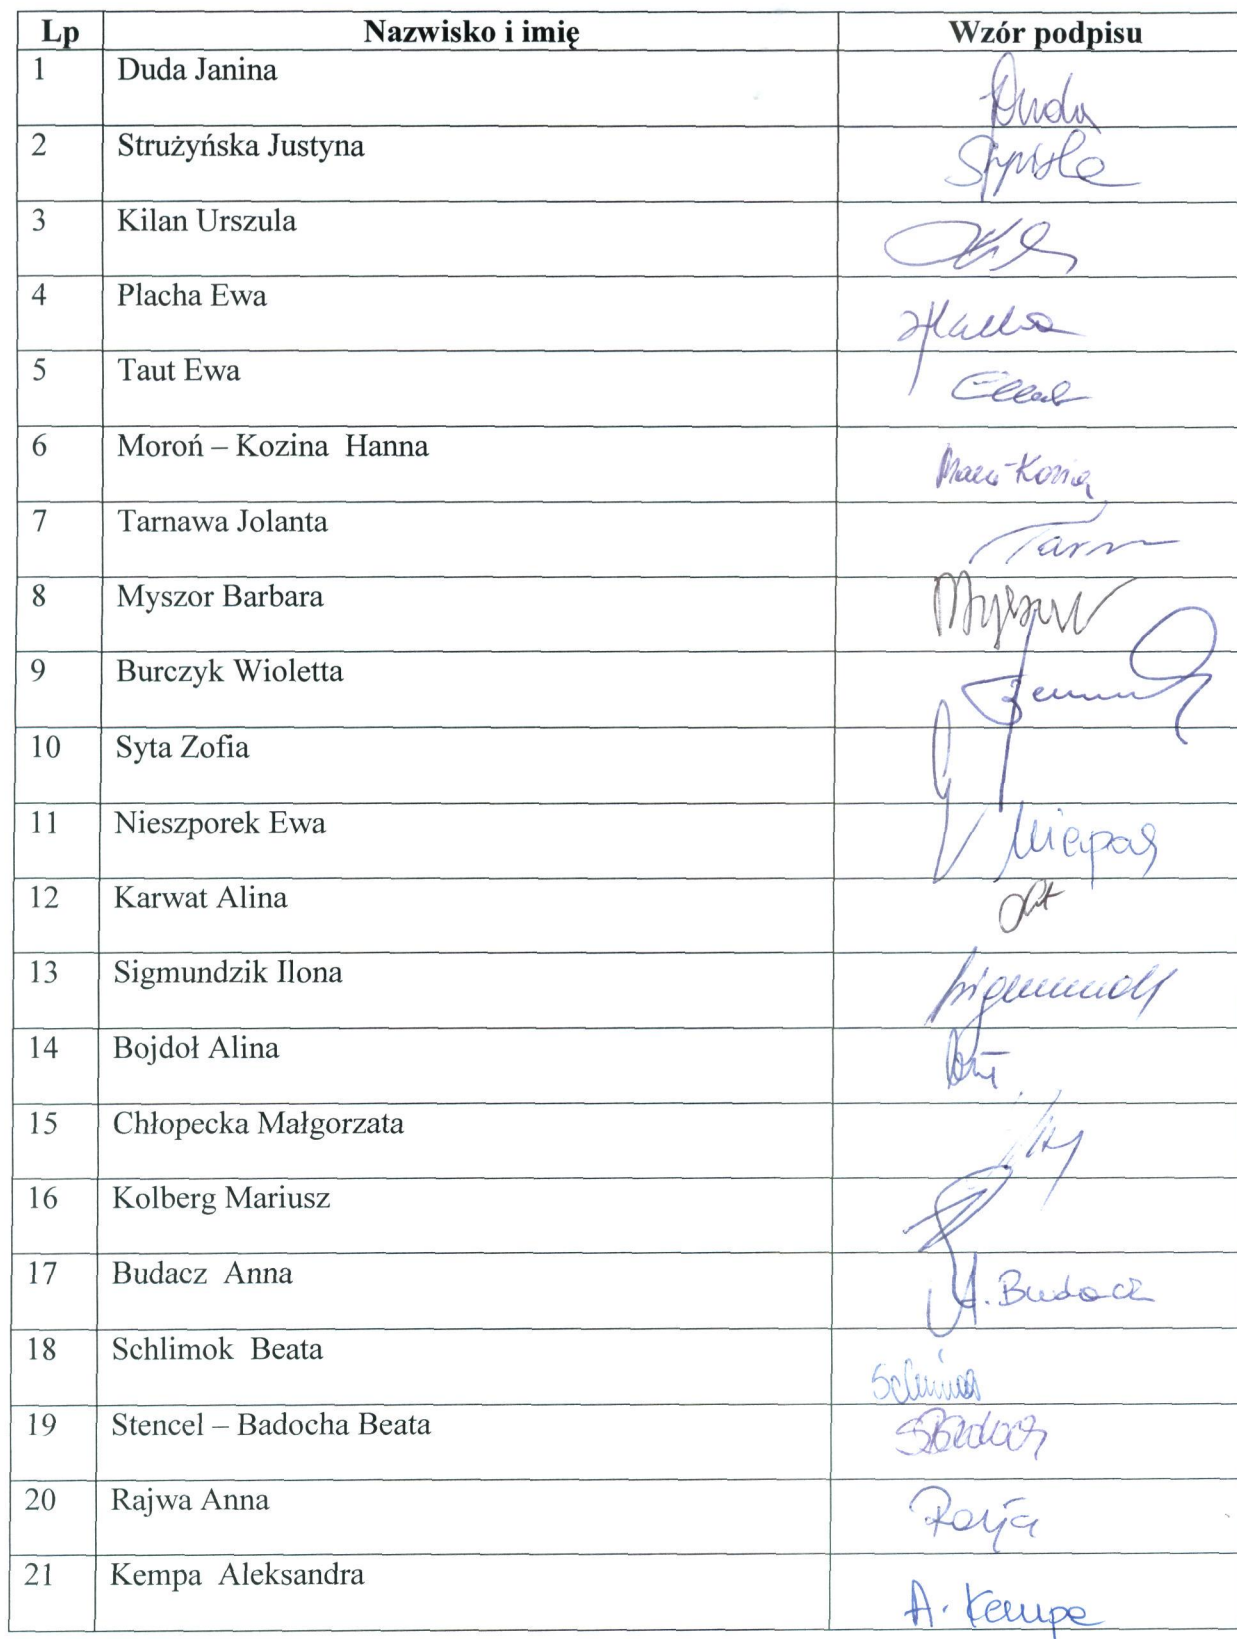 Lp Nazwisko i imię Wzór podpisu
1 Duda Janina Duda
2 Strużyńska Justyna
3 Kilan Urszula
4 Płacha Ewa
5 Taut Ewa
6 Moroń – Kozina Hanna
7 Tarnawa Jolanta
8 Myszor Barbara
9 Burczyk Wioletta
10 Syta Zofia
11 Nieszporek Ewa
12 Karwat Alina
13 Sigmundzik Ilona
14 Bojdoł Alina
15 Chłopecka Małgorzata
16 Kolberg Mariusz
17 Budacz Anna A. Budacz
18 Schlimok Beata
19 Stencel – Badocha Beata
20 Rajwa Anna
21 Kempa Aleksandra A. Kempa